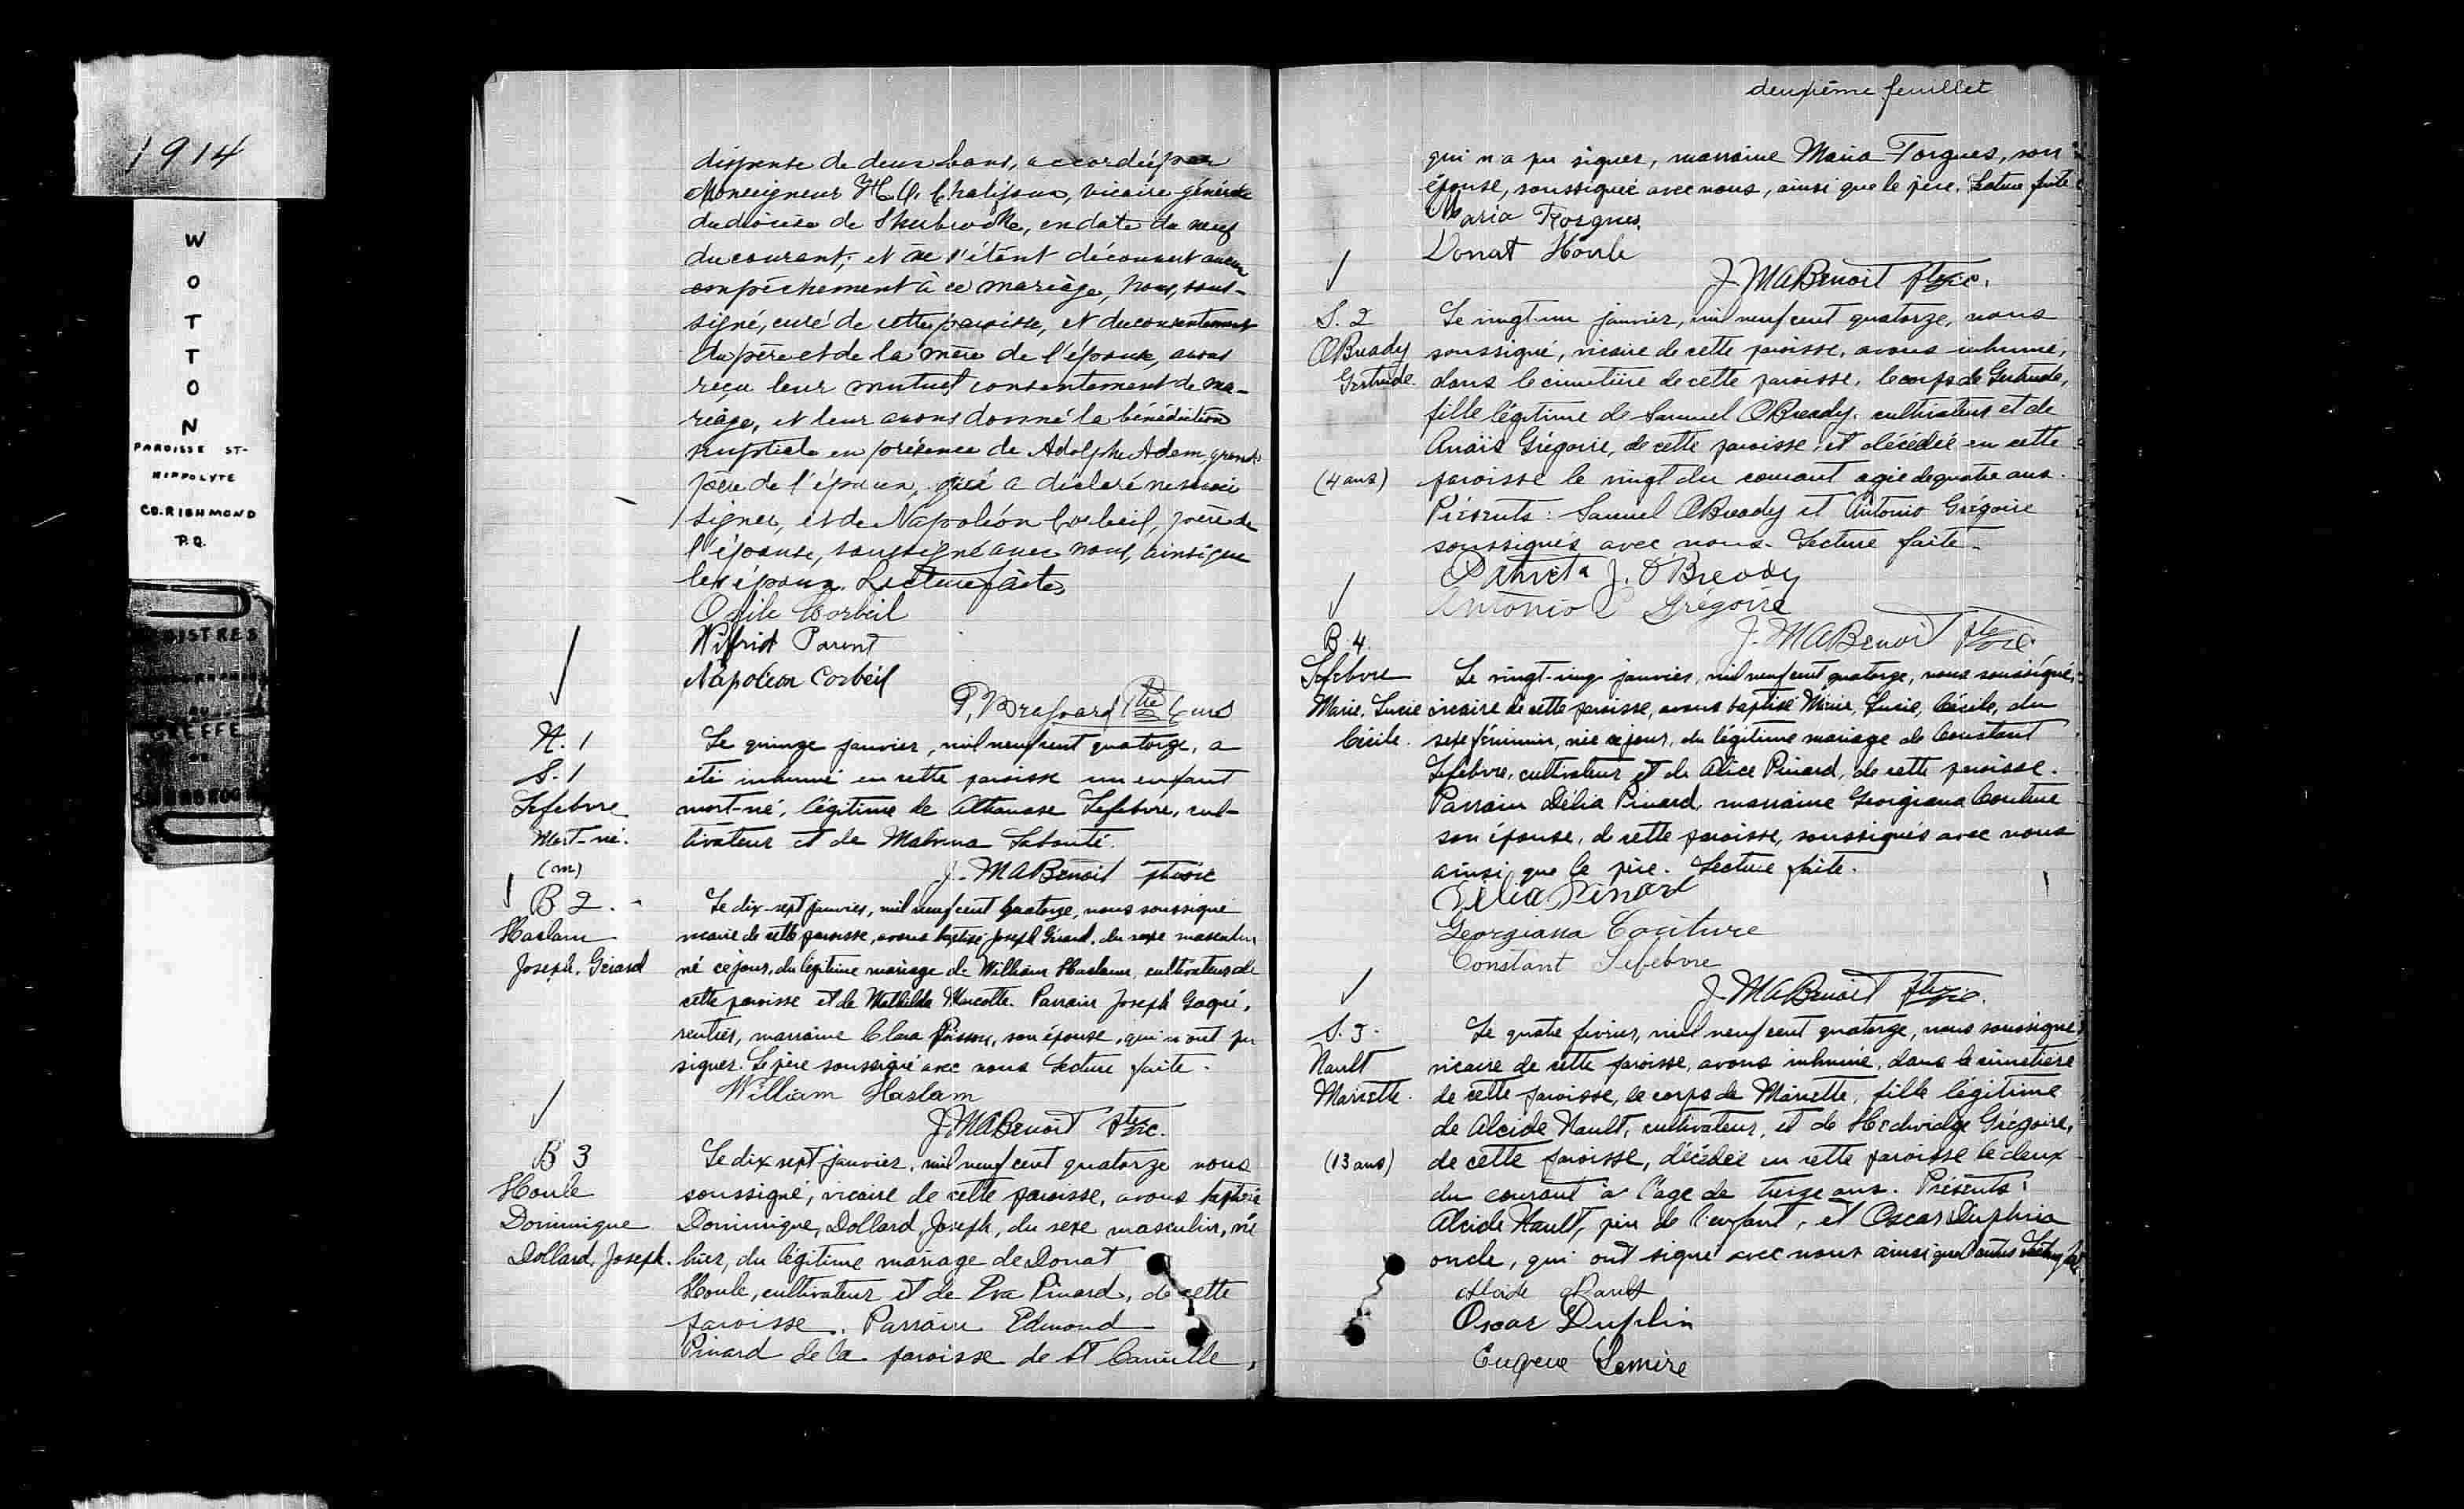 1914
W
O
T
T
O
N
PAROISSE ST-
HIPPOLYTE
CO. RICHMOND
P.Q.
REGISTRES
AU
GREFFE
DE
SHERBROOKE
dispense de deux bans, accordée par
Monseigneur H. O. Chalifoux, vicaire général
du diocèse de Sherbrooke, en date du neuf
du courant; et ne s'étant découvert aucun
empêchement à ce mariage, Nous, sous-
signé, curé de cette paroisse, et du consentement
du père et de la mère de l'épouse, avons
reçu leur mutuel consentement de ma-
riage, et leur avons donné la bénédiction
nuptiale en présence de Adolphe Adam, grand-
père de l'époux, qui a déclaré ne savoir
signer, et de Napoléon Corbeil, père de
l'épouse, soussigné avec nous, ainsi que
les époux. Lecture faite,
Corbeil
Wifrid Parent
Napoléon Corbeil
P. Brassard Ptre Curé
N. 1
S. 1
Lefebvre
Mort-né.
(m)
Le quinze janvier, mil neuf cent quatorze, a
été inhumé en cette paroisse un enfant
mort-né, légitime de Athanase Lefebvre, cul-
tivateur et de Malvina Labonté.
J. M A Benoit ptre vic
B 2.
Haslam
Joseph, Gérard
Le dix-sept janvier, mil neuf cent quatorze, nous soussigné
vicaire de cette paroisse, avons baptisé Joseph Gérard, du sexe masculin
né ce jour, du légitime mariage de William Haslam, cultivateur de
cette paroisse et de Mathilda Marcotte. Parrain Joseph Gagné,
rentier, marraine Clara son épouse, qui n'ont pu
signer. Le père soussigné avec nous Lecture faite.
William Haslam
J. M A Benoit Ptre vic.
B 3
Houle
Dominique
Dollard, Joseph.
Le dix sept janvier, mil neuf cent quatorze nous
soussigné, vicaire de cette paroisse, avons baptisé
Dominique, Dollard, Joseph, du sexe masculin, né
hier, du légitime mariage de Donat
Houle, cultivateur et de Eva Pinard, de cette
paroisse. Parrain Edmond
Pinard de la paroisse de St Camille,
deuxième feuillet
qui n'a pu signer, marraine Maria Forgues, son
épouse, soussignée avec nous, ainsi que le père. Lecture faite
Maria Forgues
Donat Houle
J. M A Benoit Ptre vic.
S. 2
O'Bready
Gertrude.
(4 ans)
Le vingt-un janvier, mil neuf cent quatorze, nous
soussigné, vicaire de cette paroisse, avons inhumé,
dans le cimetière de cette paroisse, le corps de Gertrude,
fille légitime de Samuel O'Bready, cultivateur et de
Anaïs Grégoire, de cette paroisse, et décédée en cette
paroisse le vingt du courant agée de quatre ans.
Présents: Samuel O'Bready et Antonio Grégoire
soussignés avec nous. Lecture faite.
J. O'Bready
Antonio Grégoire
J. M A Benoit Ptre vic
B 4.
Lefebvre
Marie, Lucie
Cécile.
Le vingt-cinq janvier, mil neuf cent quatorze, nous soussigné,
vicaire de cette paroisse, avons baptisé Marie, Lucie, Cécile, du
sexe féminin, née ce jour, du légitime mariage de Constant
Lefebvre, cultivateur et de Alice Pinard, de cette paroisse.
Parrain Délia Pinard, marraine Georgiana Couture
son épouse, de cette paroisse, soussignés avec nous
ainsi que le père. Lecture faite.
Délia Pinard
Georgiana Couture
Constant Lefebvre
J. M A Benoit Ptre vic.
S. 3.
Nault
Mariette.
(13 ans)
Le quatre février, mil neuf cent quatorze, nous soussigné
vicaire de cette paroisse, avons inhumé, dans le cimetière
de cette paroisse, le corps de Mariette, fille légitime
de Alcide Nault, cultivateur, et de Hedwidge Grégoire,
de cette paroisse, décédée en cette paroisse le deux
du courant à l'age de treize ans. Présents:
Alcide Nault, père de l'enfant, et Oscar Duplin
oncle, qui ont signé avec nous ainsi que d'autres
Alcide Nault
Oscar Duplin
Eugene Lemire